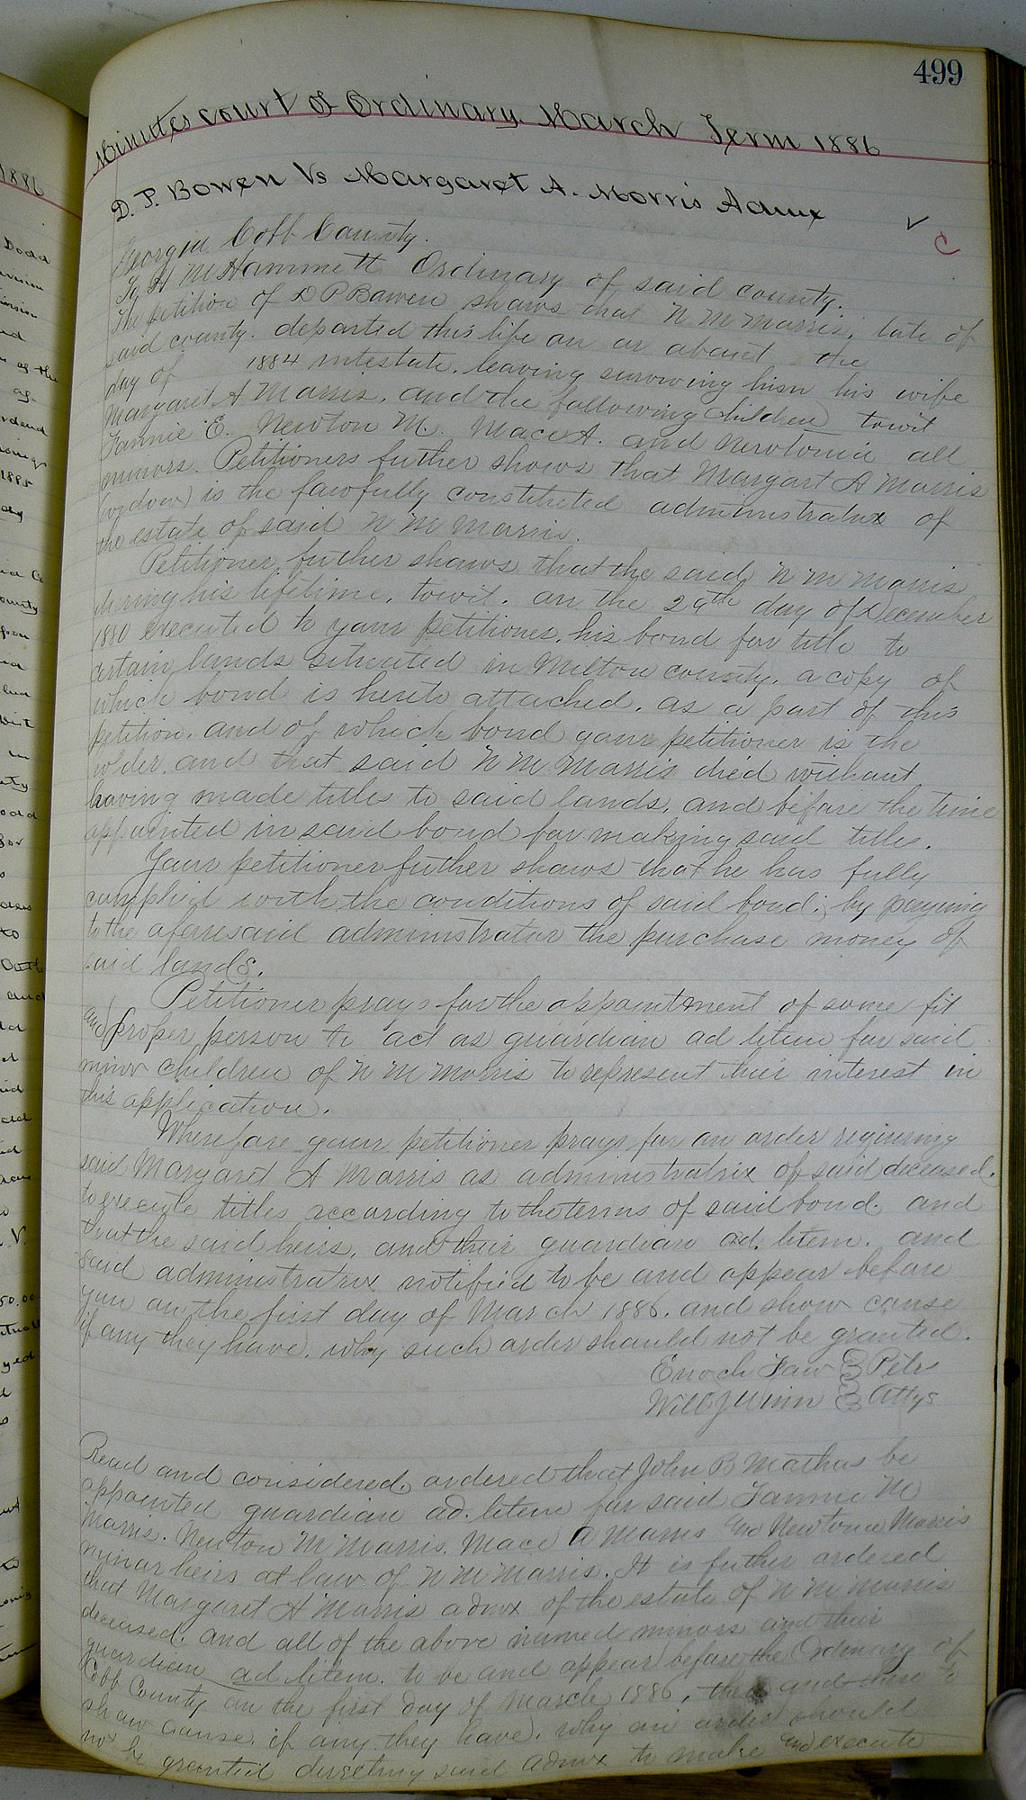 499
Minutes Court of Ordinary. March Term 1886
D. P. Bowen Vs Margaret A. Morris Admx
Georgia Cobb County.
To H M Hammett Ordinary of said county.
The petition of D P Bowen shows that N M Morris, late of
said county. departed this life on or about the
day of 1884 intestate. leaving surviving him his wife
Margaret A Morris. and the following children towit
Fannie E. Newton M. Mace A. and Newtonia all
minors. Petitioners futher shows that Margart A Morris
(widow) is the lawfully constituted administratrix of
the estate of said N M Morris.
Petitioner futher shows that the said N M Morris
during his lifetime. towit. on the 29th day of December
1880 executed to your petitioner. his bond for title to
certain lands situated in Milton county. a copy of
which bond is hereto attached. as a part of this
petition. and of which bond your petitioner is the
holder. and that said N M Morris died without
having made titles to said lands, and before the time
appointed in said bond for making said titles.
Your petitioner futher shows that he has fully
complied with the conditions of said bond; by paying
to the aforesaid administrator the purchase money of
said lands.
Petitioner prays for the appointment of some fit
and proper person to act as guardian ad litem for said
minor children of N M Morris to represent their interest in
this application.
Wherefore your petitioner prays for an order requiring
said Margaret A Morris as administratrix of said deceased.
to execute titles according to the terms of said bond. and
that the said heirs, and their guardian ad. litem. and
said administratrix notified to be and appear before
you on the first day of March 1886. and show cause
if any they have. why such order should not be granted.
Enoch Faw Petr
Will J Winn Attys
Read and considered. ordered that John B Mathas be
appointed guardian ad. litem for said Fannie M
Morris. Newton M Morris. Mace A Morris and Newtonia Morris
minor heirs at law of N M Morris. It is futher ordered
that Margaret A Morris admx of the estate of N M Morris
deceased. and all of the above named minors and their
guardian ad litem. to be and appear before the Ordinary of
Cobb County on the first day of March 1886, then and there to
show cause if any they have. why an order should
not be granted directing said admx to make and execute